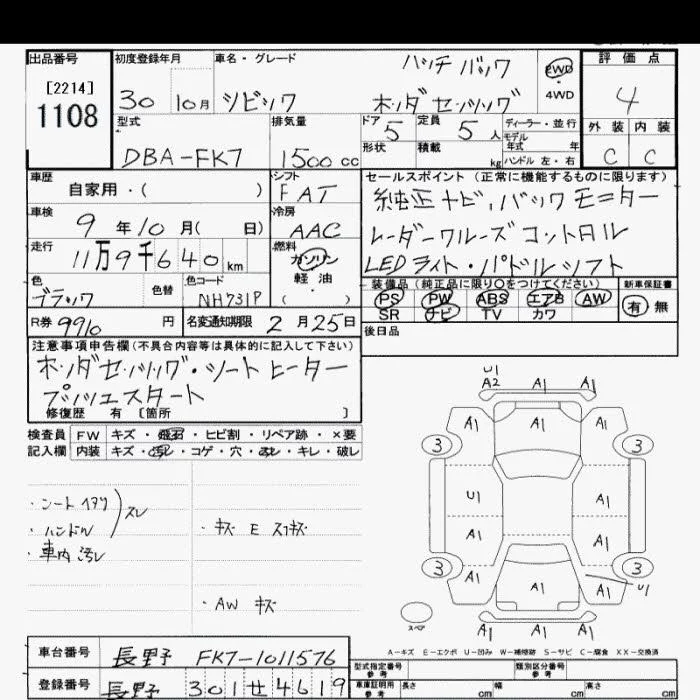 出品番号 初度登録年月 車名・グレード ハッチバック 2WD 評価点
[2214] 30 10月 シビック ホンダセンシング 4WD 4
1108 型式 排気量 ドア 定員 ディーラー・並行 外装 内装
DBA-FK7 1500cc 5 5人 モデル年式 年 C C
形状 積載 kg ハンドル 左・右
車歴 シフト セールスポイント(正常に機能するものに限ります)
自家用・( ) FAT 純正ナビ、バックモニター
車検 9年10月( 日) 冷房 AAC レーダークルーズコントロール
走行 11万9千640km 燃料 ガソリン LEDライト・パドルシフト
色 色替 色コード 軽油 装備品(純正品に限り○をつけてください) 新車保証書
ブラック NH731P ( ・ ) PS PW ABS エアB AW 有 無
SR ナビ TV カワ
R券 9910円 名変通知期限 2月25日 後日品
注意事項申告欄(不具合内容等は具体的に記入して下さい)
ホンダセンシング・シートヒーター
プッシュスタート
修復歴 有 〔箇所 〕
検査員 FW キズ・飛石・ヒビ割・リペア跡・×要
記入欄 内装 キズ・汚レ・コゲ・穴・スレ・キレ・破レ
・ハンドル スレ
・車内汚レ
・AW キズ
U1
A2 A1 A1
A1 A1 A1
3 3
U1 A1
A1 A1
3 3
A1 A1 A1 U1
A1 A1 A1
スペア
A-キズ E-エクボ U-凹み W-補修跡 S-サビ C-腐食 XX-交換済
車台番号 長野 FK7-1011576 型式指定番号 参考 類別区分番号 参考
登録番号 長野 301せ4619 車庫証明用 参考 長さ cm 幅 cm 高さ cm